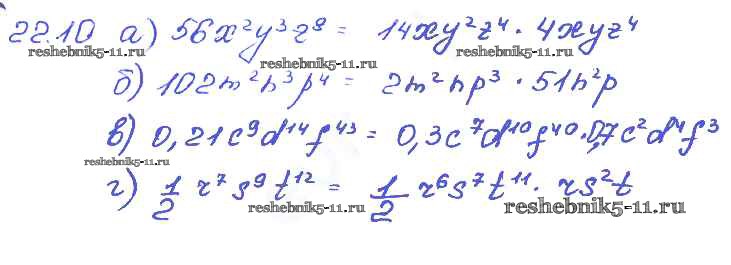 22.10 а) 56x²y³z⁸ = 14xy²z⁴ · 4xyz⁴
reshebnik5-11.ru reshebnik5-11.ru reshebnik5-11.ru
б) 102m²n³p⁴ = 2m²np³ · 51n²p
в) 0,21c⁹d¹⁴f⁴³ = 0,3c⁷d¹⁰f⁴⁰·0,7c²d⁴f³
reshebnik5-11.ru
г) 1/2 r⁷s⁹t¹² = 1/2 r⁶s⁷t¹¹ · rs²t
reshebnik5-11.ru reshebnik5-11.ru